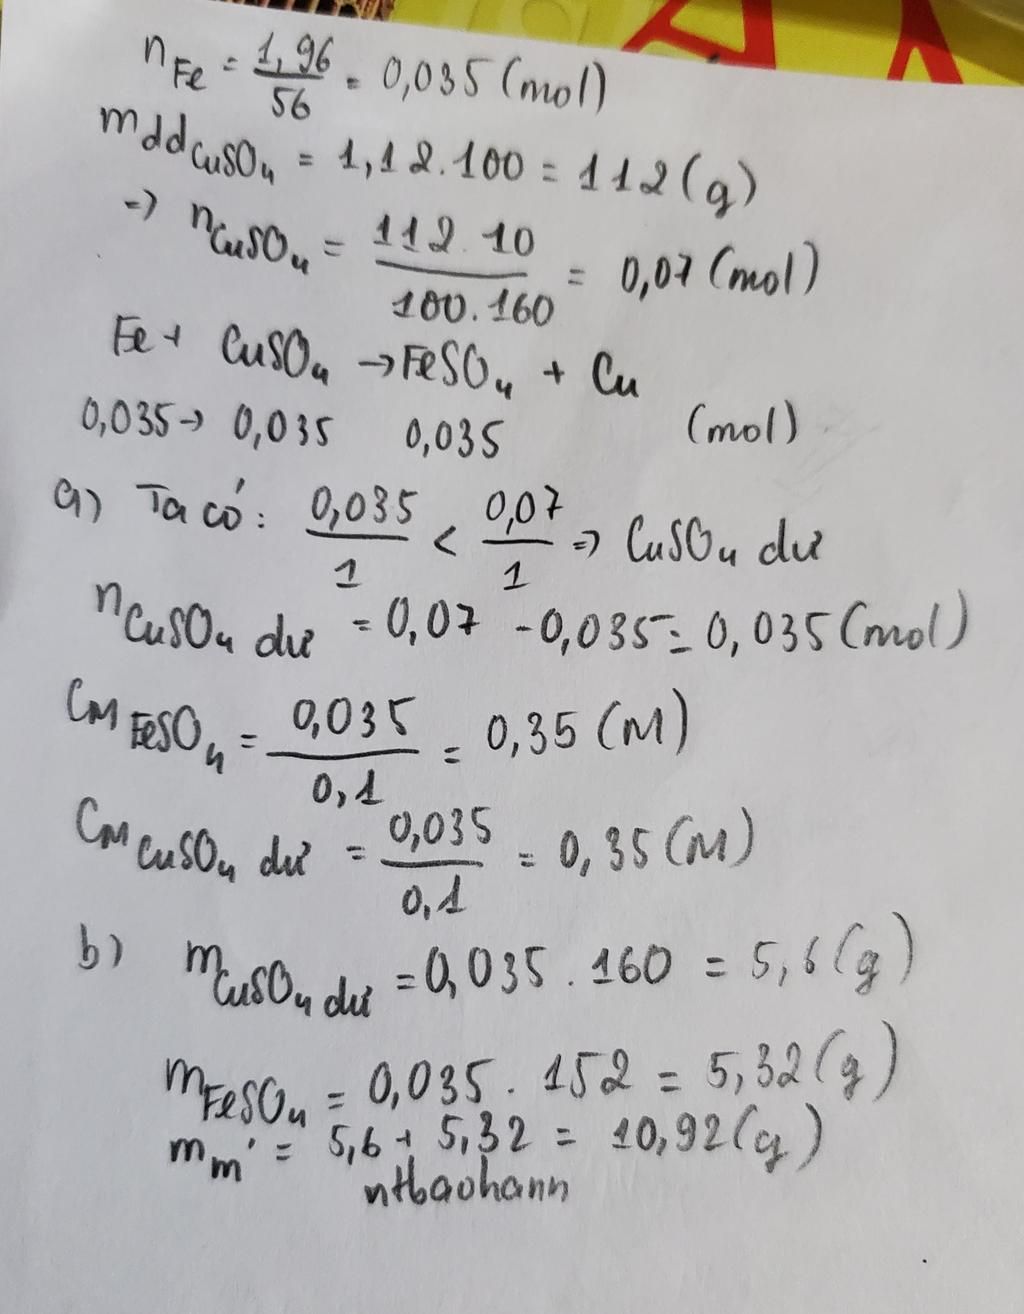 nFe = 1,96/56 = 0,035 (mol)
mddCuSO4 = 1,12.100 = 112 (g)
=> nCuSO4 = 112.10/100.160 = 0,07 (mol)
Fe + CuSO4 → FeSO4 + Cu
0,035 → 0,035 0,035 (mol)
a) Ta có: 0,035/1 < 0,07/1 => CuSO4 dư
nCuSO4 dư = 0,07 - 0,035 = 0,035 (mol)
CM FeSO4 = 0,035/0,1 = 0,35 (M)
CM CuSO4 dư = 0,035/0,1 = 0,35 (M)
b) mCuSO4 dư = 0,035 . 160 = 5,6 (g)
mFeSO4 = 0,035 . 152 = 5,32 (g)
mm' = 5,6 + 5,32 = 10,92 (g)
ntbaohann